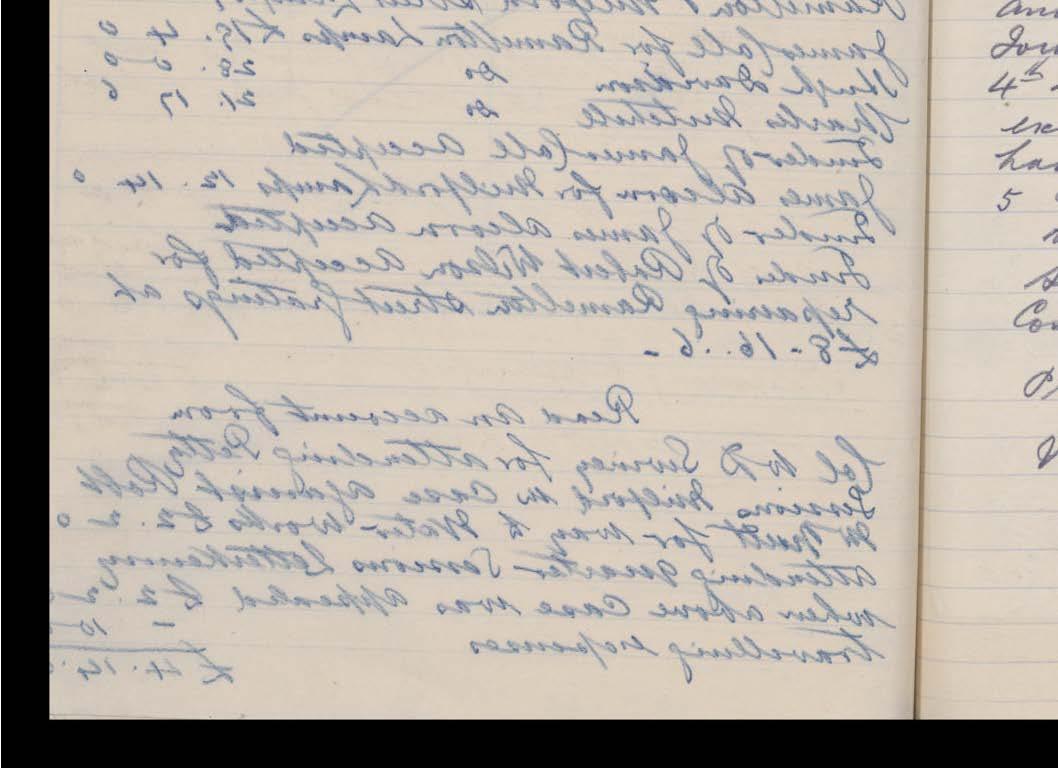 James Cale for Ramelton Lamps £15. 4. 0
Hugh Davison Do 28. 0 0
Charles Do 21. 17 6
Tender of James Cale accepted
James Alcorn for Milford Lamps 12. 14. 0
Tender of James Alcorn accepted
Tender of Robert Wilson accepted for
repairing Ramelton Street gratings at
£8-16..6-
Read an account from
Col W D Swiney for attending Petty
Sessions Milford in Case against Robt
for way to Water Works £2. 2 0
Attending Quarter Sessions Letterkenny
when above Case was appealed £2.2
travelling expenses - 10
£4.14.
and
4th
ex
has
5